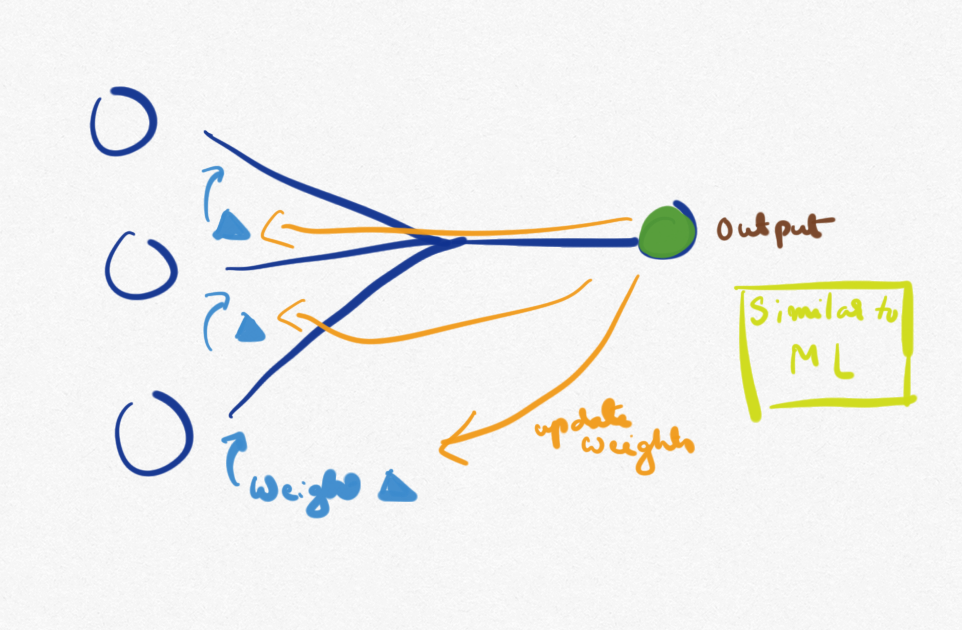 Output
Similar to
ML
update
weights
Weights